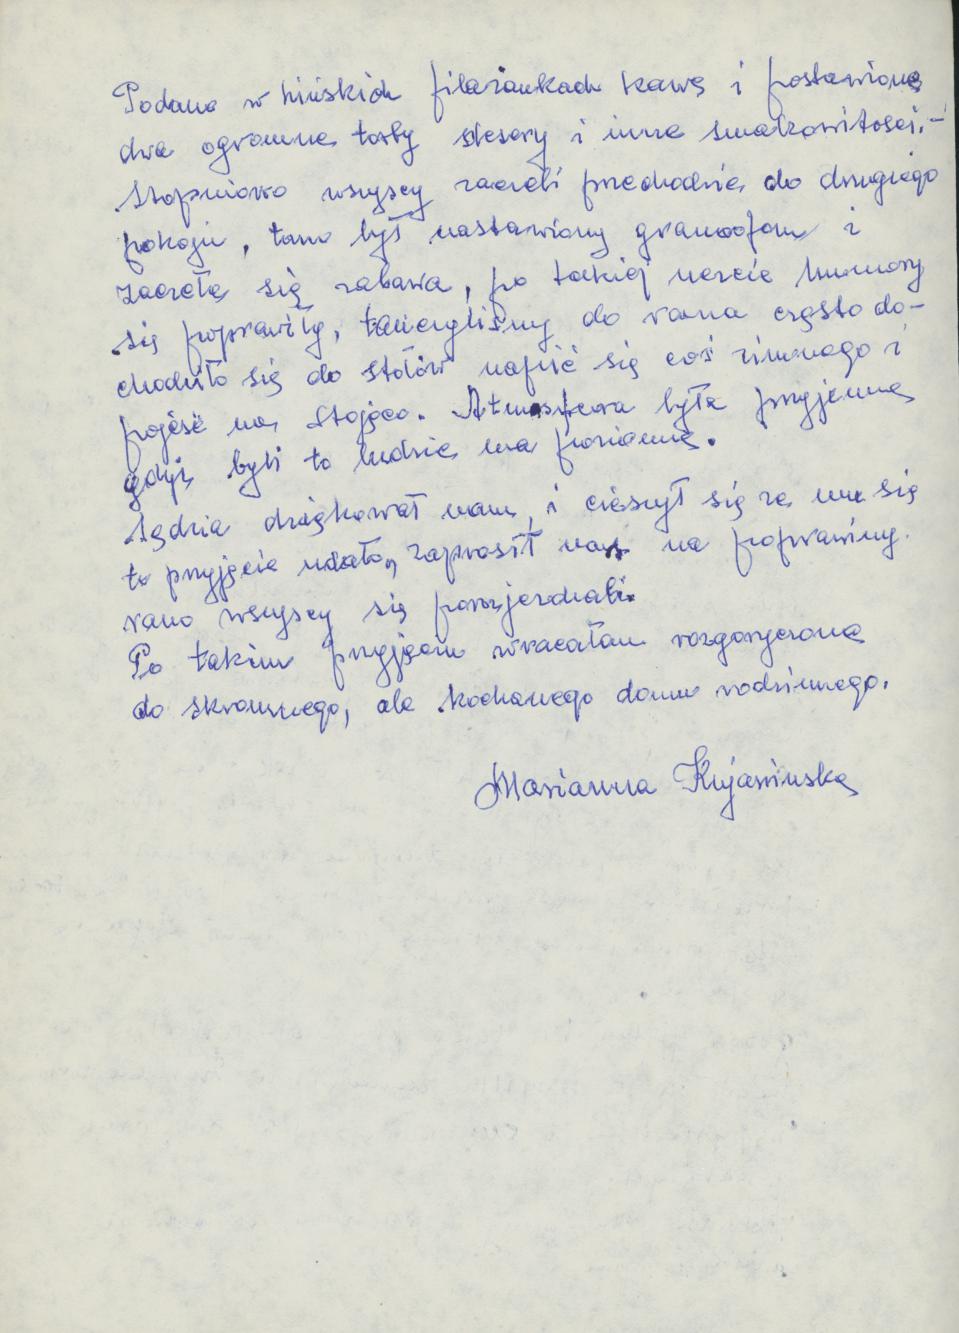 Podano w hińskich filiżankach kawę i postawiono
dwa ogromne torty desery i inne smakowitości.-
Stopniowo wszyscy zaczęli przechodzić do drugiego
pokoju, tam był nastawiony gramofon i
zaczęła się zabawa, po takiej uczcie humory
się poprawiły, tańczyliśmy do rana często do-
chodziło się do stołów napić się coś zimnego i
pojeść na stojąco. Atmosfera była przyjemna
gdyż byli to ludzie na poziomie.
Sędzia dziękował nam, i cieszył się że mu się
to przyjęcie udało, zaprosił nas na poprawiny.
rano wszyscy się porozjeżdżali.
Po takim przyjęciu wracałam rozgoryczona
do skromnego, ale kochanego domu rodzinnego.
Marianna Kujawińska